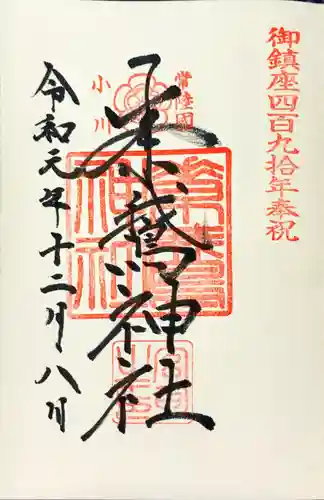 御鎮座四百九拾年奉祝
常陸國
小川
素鵞神社
令和元年十二月八日